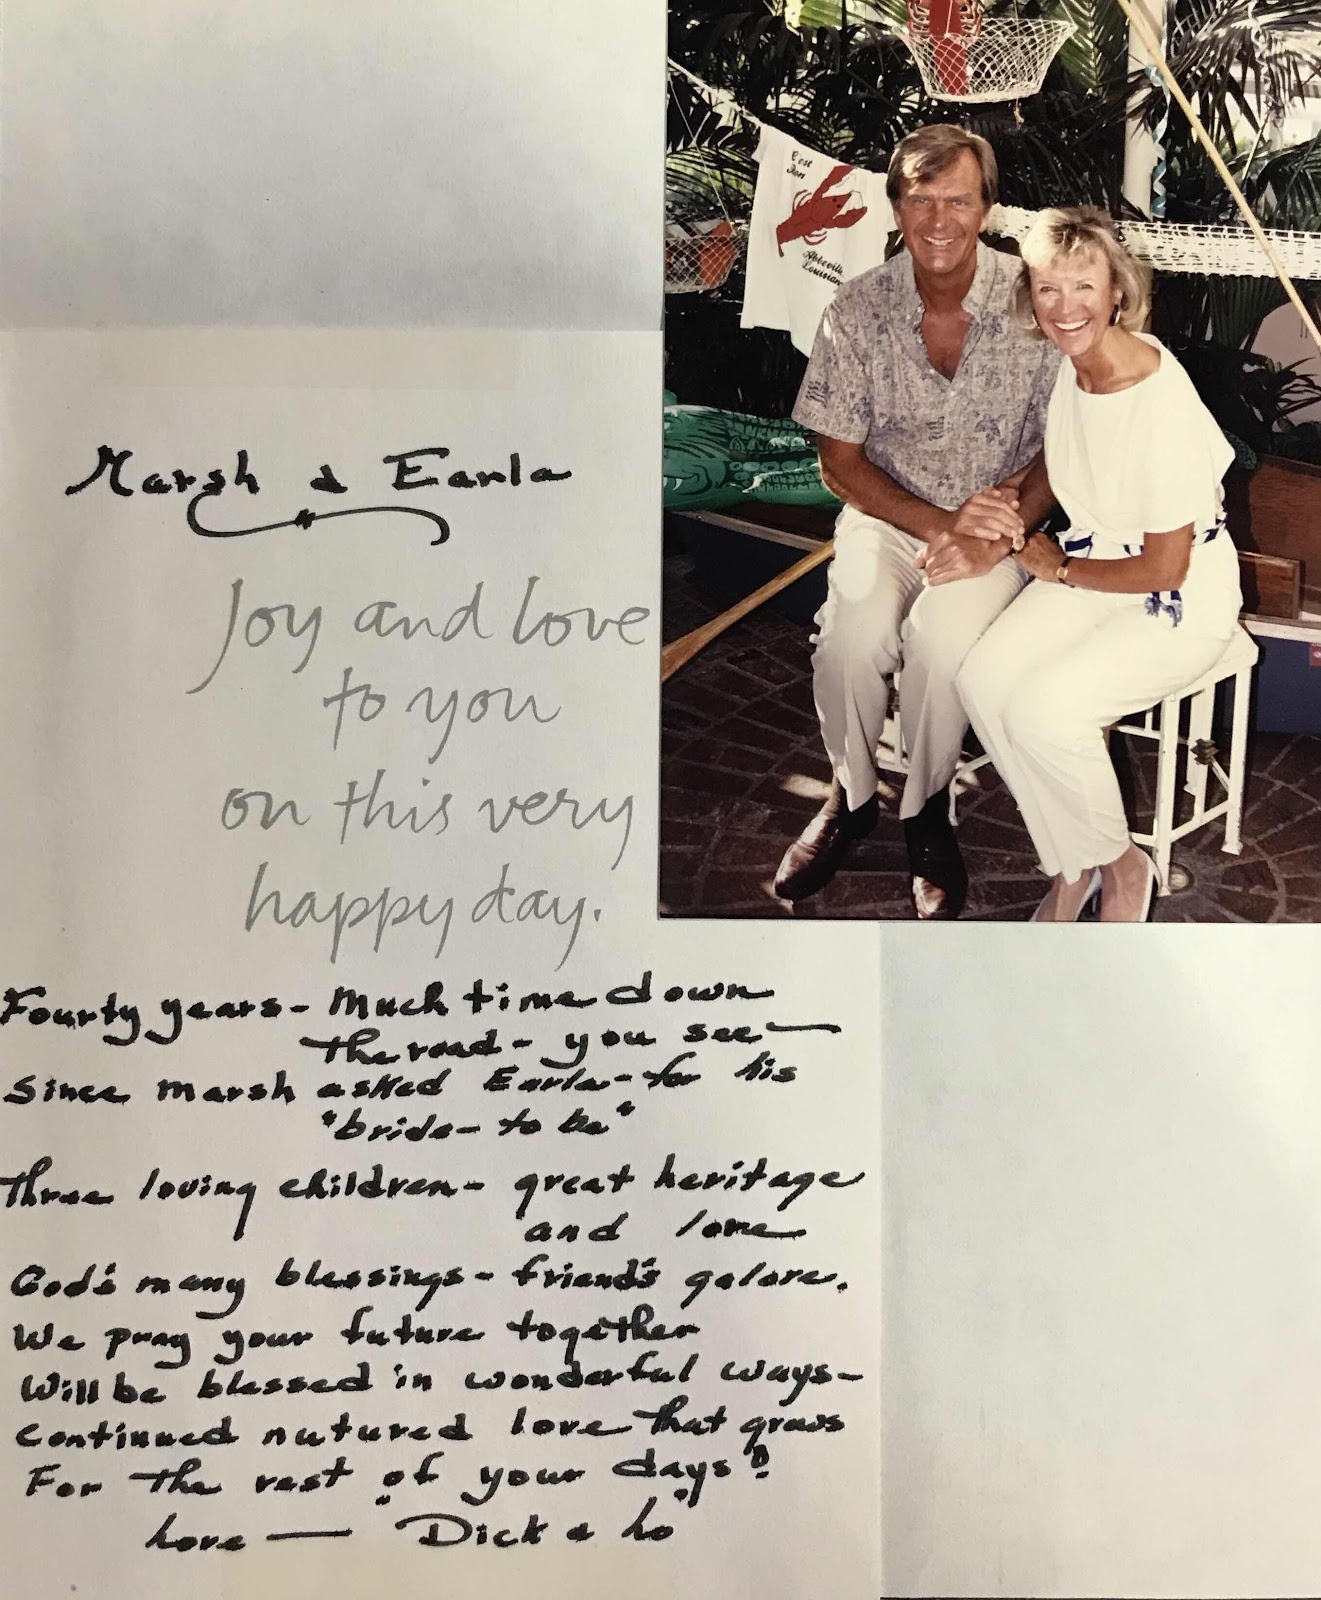 C'est
Bon
Abbeville
Louisiana
Marsh & Earla
Joy and love
to you
on this very
happy day.
Fourty years - Much time down
the road - you see —
Since Marsh asked Earla - for his
"bride - to be"
Three loving children - great heritage
and love
God's many blessings - friend's galore.
We pray your future together
Will be blessed in wonderful ways -
Continued nutured love that grows
For the rest of your days!
Love — "Dick & Lo"